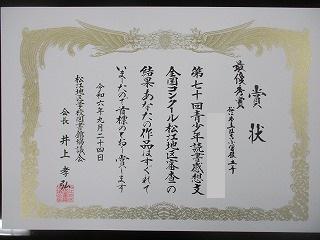 賞状
最優秀賞
第七十回青少年読書感想文
全国コンクール松江地区審査の
結果あなたの作品はすぐれて
いましたので首標のとおり賞します
令和六年九月二十四日
松江地区学校図書館協議会
会長 井上 孝弘